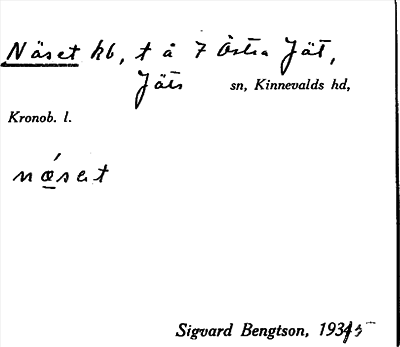 Näset hb, t å 7 Östra Jät,
Jäts sn, Kinnevalds hd,
Kronob. l.
nǽ̲set
Sigvard Bengtson, 1935